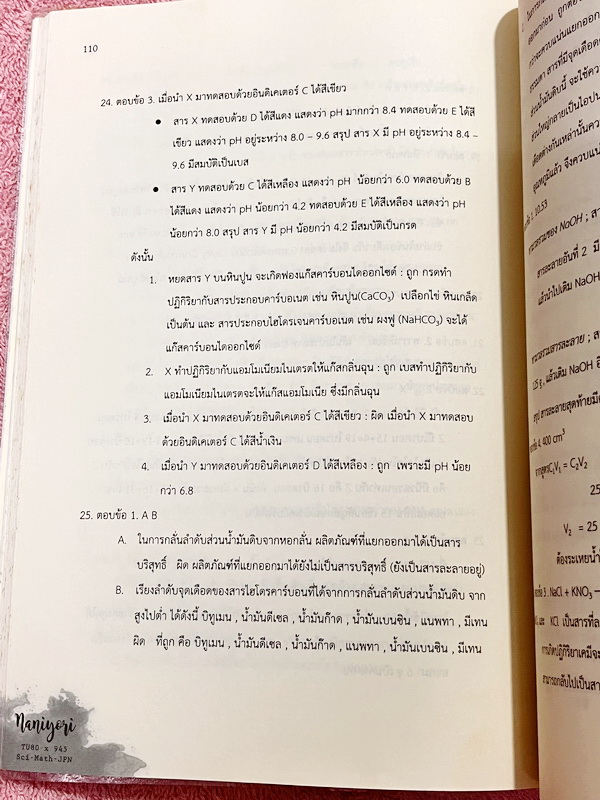 110
24. ตอบข้อ 3. เมื่อนำ X มาทดสอบด้วยอินดิเคเตอร์ C ได้สีเขียว
● สาร X ทดสอบด้วย D ได้สีแดง แสดงว่า pH มากกว่า 8.4 ทดสอบด้วย E ได้สี
เขียว แสดงว่า pH อยู่ระหว่าง 8.0 – 9.6 สรุป สาร X มี pH อยู่ระหว่าง 8.4 –
9.6 มีสมบัติเป็นเบส
● สาร Y ทดสอบด้วย C ได้สีเหลือง แสดงว่า pH น้อยกว่า 6.0 ทดสอบด้วย B
ได้สีแดง แสดงว่า pH น้อยกว่า 4.2 ทดสอบด้วย E ได้สีเหลือง แสดงว่า pH
น้อยกว่า 8.0 สรุป สาร Y มี pH น้อยกว่า 4.2 มีสมบัติเป็นกรด
ดังนั้น
1. หยดสาร Y บนหินปูน จะเกิดฟองแก๊สคาร์บอนไดออกไซด์ : ถูก กรดทำ
ปฏิกิริยากับสารประกอบคาร์บอเนต เช่น หินปูน(CaCO₃) เปลือกไข่ หินเกล็ด
เป็นต้น และ สารประกอบไฮโดรเจนคาร์บอเนต เช่น ผงฟู (NaHCO₃) จะได้
แก๊สคาร์บอนไดออกไซด์
2. X ทำปฏิกิริยากับแอมโมเนียมไนเตรตให้แก๊สกลิ่นฉุน : ถูก เบสทำปฏิกิริยากับ
แอมโมเนียมไนเตรตจะให้แก๊สแอมโมเนีย ซึ่งมีกลิ่นฉุน
3. เมื่อนำ X มาทดสอบด้วยอินดิเคเตอร์ C ได้สีเขียว : ผิด เมื่อนำ X มาทดสอบ
ด้วยอินดิเคเตอร์ C ได้สีน้ำเงิน
4. เมื่อนำ Y มาทดสอบด้วยอินดิเคเตอร์ D ได้สีเหลือง : ถูก เพราะมี pH น้อย
กว่า 6.8
25. ตอบข้อ 1. A B
A. ในการกลั่นลำดับส่วนน้ำมันดิบจากหอกลั่น ผลิตภัณฑ์ที่แยกออกมาได้เป็นสาร
บริสุทธิ์ ผิด ผลิตภัณฑ์ที่แยกออกมาได้ยังไม่เป็นสารบริสุทธิ์ (ยังเป็นสารละลายอยู่)
B. เรียงลำดับจุดเดือดของสารไฮโดรคาร์บอนที่ได้จากการกลั่นลำดับส่วนน้ำมันดิบ จาก
สูงไปต่ำ ได้ดังนี้ บิทูเมน , น้ำมันดีเซล , น้ำมันก๊าด , น้ำมันเบนซิน , แนพทา , มีเทน
ผิด ที่ถูก คือ บิทูเมน , น้ำมันดีเซล , น้ำมันก๊าด , แนพทา , น้ำมันเบนซิน , มีเทน
Naniyori
TU80 x 945
Sci-Math-JPN
ออกมาก่อน
10.53
NaOH ; สา
สารละลายอันที่ 2 มี
แล้วนำไปเติม NaOH
1.25 g, แล้วเติม NaOH
4. 400 cm³
C₁V₁ = C₂V₂
25
V₂ = 25
ต้องระเหยน้ำ
3. NaCl + KNO₃
KCl เป็นสารที่ล
การเกิดปฏิกิริยาเคมีจะ
สามารถกลับไปเป็นสา